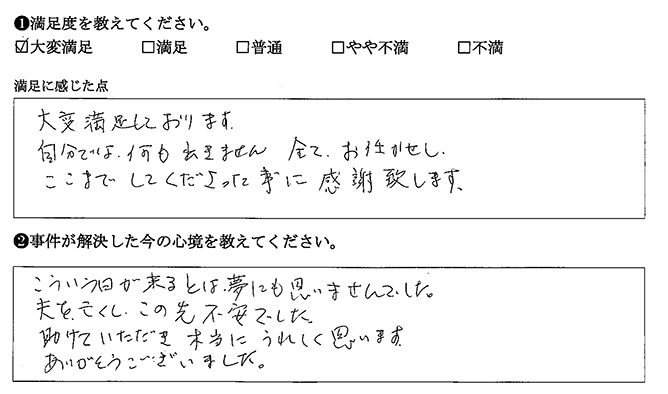 ❶満足度を教えてください。
☑大変満足 □満足 □普通 □やや不満 □不満
満足に感じた点
大変満足しております。
自分では、何も出きません 全て、お任かせし、
ここまで してくださった事に 感謝致します。
❷事件が解決した今の心境を教えてください。
こういう日が来るとは、夢にも思いませんでした。
夫を、亡くし、この先 不安でした。
助けていただき 本当に うれしく思います。
ありがとうございました。